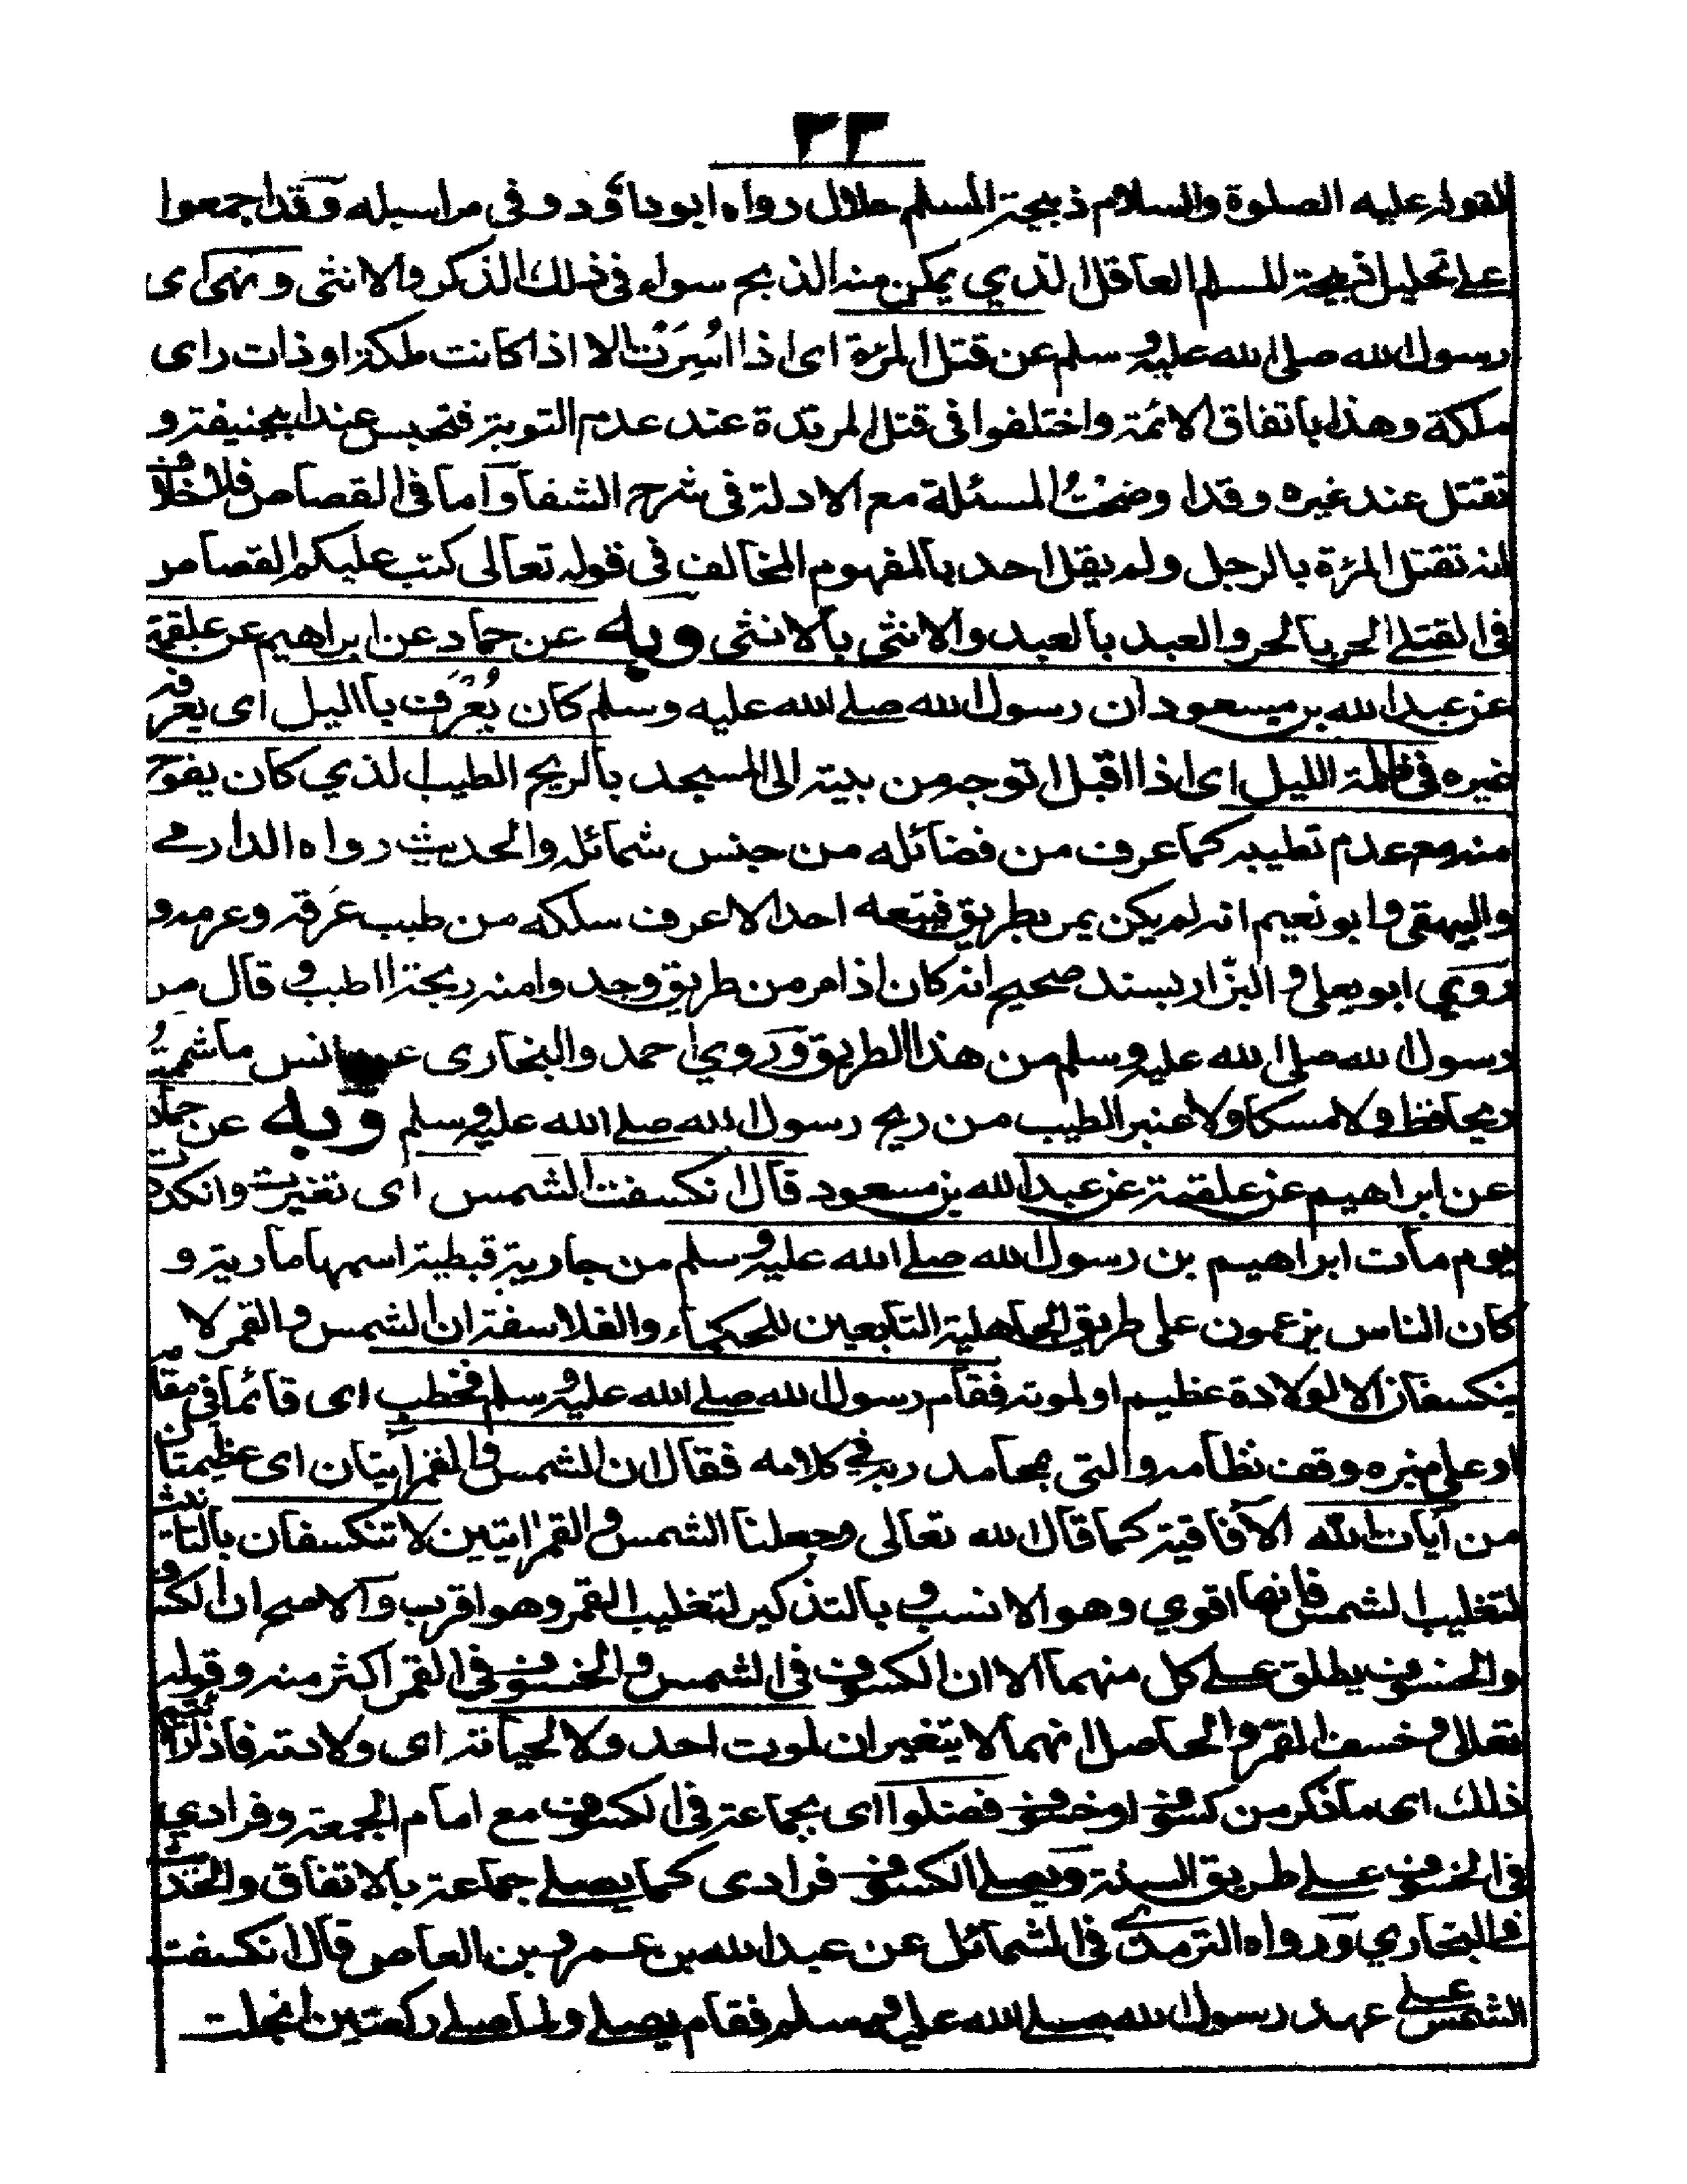 ٣٣
لقوله عليه الصلوة والسلام ذبيحة المسلم حلال رواه ابوداؤد وفى مراسيله وقد اجمعوا
على تحليل ذبيحة المسلم العاقل الذي يمكن منه الذبح سواء فى ذلك الذكر والانثى ونهى اى
رسول الله صلى الله عليه وسلم عن قتل المرءة اى اذا اُسِرَتْ الا اذا كانت ملكة او ذات راى
ملكة وهذا باتفاق الائمة واختلفوا فى قتل المرتدة عند عدم التوبة فتحبس عند ابيحنيفة و
تقتل عند غيره وقد اوضحْتُ المسئلة مع الادلة فى شرح الشفا واما فى القصاص فلا خلاف
انه تقتل المرءة بالرجل ولم يقل احد بالمفهوم المخالف فى قوله تعالى كتب عليكم القصاص
فى القتلى الحر بالحر والعبد بالعبد والانثى بالانثى وبه عن حماد عن ابراهيم عن علقمة
عن عبد الله بن مسعود ان رسول الله صلى الله عليه وسلم كان يُعرَف بااليل اى يعرفه
غيره فى ظلمة الليل اى اذا اقبل او توجه من بيته الى المسجد بالريح الطيب الذي كان يفوح
منه مع عدم تطيبه كما عرف من فضائله من جنس شمائله والحديث رواه الدارمى
والبيهقى وابو نعيم انه لم يكن يمر بطريق فيتبعه احد الا عرف سلكه من طيب عَرقه وعرفه و
روى ابو يعلى والبزّار بسند صحيح انه كان اذا مر من طريق وجدوا منه ريحة اطيب وقال مر
رسول الله صلى الله عليه وسلم من هذا الطريق وروي احمد والبخارى عن انس ما شممتُ
ريحا قط ولا مسكا ولا عنبر الطيب من ريح رسول الله صلى الله عليه وسلم وبه عن حماد
عن ابراهيم عن علقمة عن عبد الله بن مسعود قال انكسفت الشمس اى تغيرت وانكدرت
يوم مات ابراهيم بن رسول الله صلى الله عليه وسلم من جارية قبطية اسمها مارية و
كان الناس يزعمون على طريق الجاهلية التابعين للحكماء والفلاسفة ان الشمس والقمر لا
ينكسفان الا لولادة عظيم او لموته فقام رسول الله صلى الله عليه وسلم فخطب اى قائما فى مقامه
او على منبره وقف نظامه والتى بمحامد ربه في كلامه فقال ان الشمس والقمر ايتان اى عظيمتان
من آيات الله الآفاقية كما قال الله تعالى وجعلنا الشمس والقمر ايتين لا تنكسفان بالتانيث
لتغليب الشمس فانها اقوي وهو الانسب و بالتذكير لتغليب القمر وهو اقرب والاصح ان الكسوف
والخسوف يطلق على كل منهما الا ان الكسوف فى الشمس والخسوف فى القمر اكثر منه وقوله
تعالى وخسف القمر والحاصل انهما لا يتغيران لموت احد ولا لحياته اى ولادته فاذا رأيتم
ذلك اى ما ذكر من كسوف او خسوف فصلوا اى بجماعة فى الكسوف مع امام الجمعة وفرادي
فى الخسوف على طريق السنة ويصلى الكسوف فرادى كما يصلى جماعة بالاتفاق والحديث
فى البخاري ورواه الترمذى فى الشمائل عن عبد الله بن عمرو بن العاص قال انكسفت
الشمس على عهد رسول الله صلى الله عليه وسلم فقام يصلى ولما صلى ركعتين انجلت